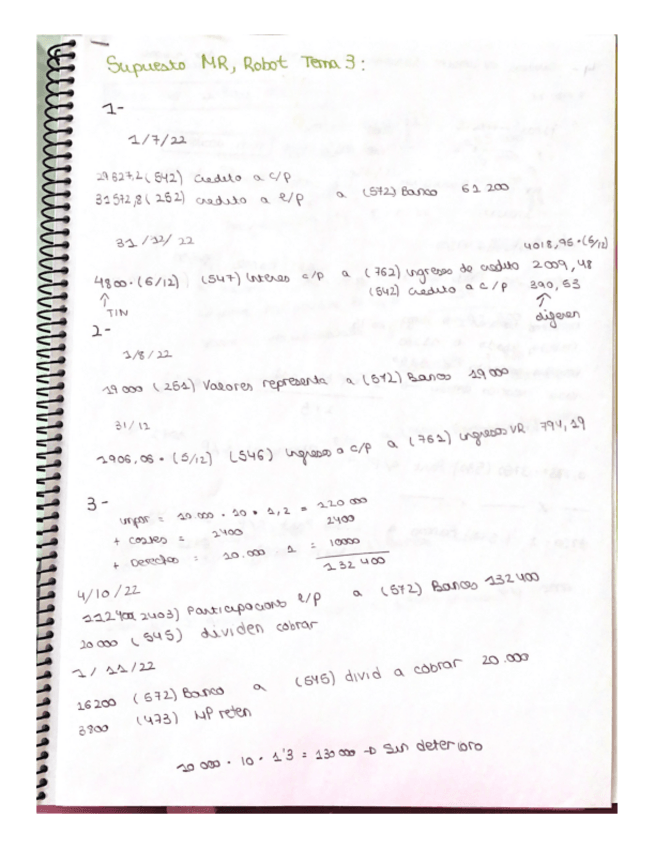 Supuesto MR, Robot Tema 3:
1-
1/7/22
29627,2 (542) Credito a c/p
31572,8 (252) credito a e/p a (572) Banco 61 200
31/12/22
4018,96·(6/12)
4800·(6/12) (547) Interes c/p a (762) ingreso de credito 2009,48
(542) credito a c/p 390,53
↑ TIN
↑ digeren
2-
1/8/22
19 000 (251) Valores representa a (572) Banco 19 000
31/12
1906,06·(5/12) (546) ingreso a c/p a (761) ingreso VR 794,19
3-
impor = 10.000 · 10 · 1,2 = 120 000
+ costes = 2400 2400
+ Derechos = 10.000 1 = 10000
132 400
4/10/22
112400 (2403) Participacions e/p a (572) Bancos 132400
20 000 (545) dividen cobrar
1/11/22
16200 (572) Banco a (545) divid a cobrar 20.000
3800 (473) HP reten
10 000 · 10 · 1'3 = 130 000 → Sin deterioro